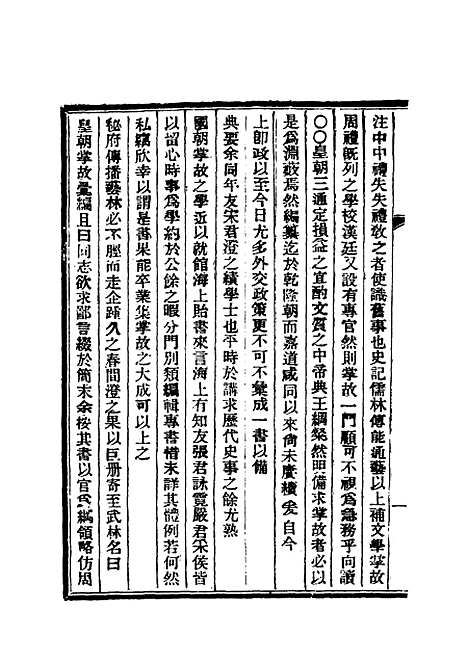 注中中禮失失禮敎之者使識舊事也史記儒林傳能通藝以上補文學掌故
周禮旣列之學校漢廷又設有專官然則掌故一門顧可不視爲急務乎向讀
〇〇皇朝三通定損益之宜酌文質之中帝典王綱粲然明備求掌故者必以
是爲淵藪焉然編纂迄於乾隆朝而嘉道咸同以來尙未賡續爰自今
上卽政以至今日尤多外交政策更不可不彙成一書以備
典要余同年友宋君澄之績學士也平時於講求歷代史事之餘尤熟
國朝掌故之學近以就館海上貽書來言海上有知友張君詠霓嚴君釆侯皆
以留心時事爲學約於公餘之暇分門別類編輯專書惜未詳其體例若何然
私竊欣幸以謂是書果能卒業集掌故之大成可以上之
秘府傳播藝林必不脛而走企踵久之春間澄之果以巨册寄至武林名曰
皇朝掌故彙編且曰同志欲求鄙言綴於簡末余按其書以官爲綱領略仿周